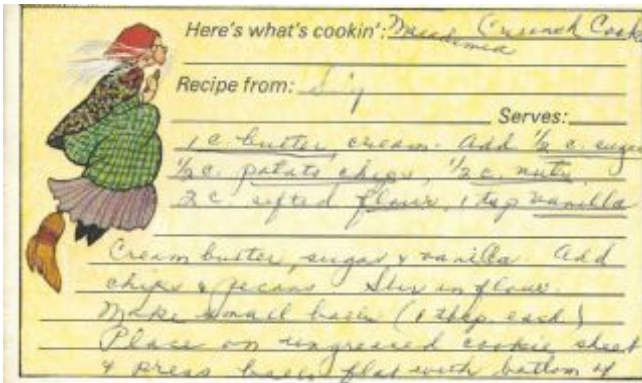 Here's what's cookin': Macadamia Crunch Cook
Recipe from:
Serves:
1 c. butter, cream. Add 1/2 c. sugar
1/2 c. potato chips, 1/2 c. nuts
2 c. sifted flour, 1 tsp vanilla
Cream butter, sugar & vanilla Add
chips & pecans Stir in flour
Make small balls (1 tbsp each)
Place on ungreased cookie sheet
& press balls flat with bottom of